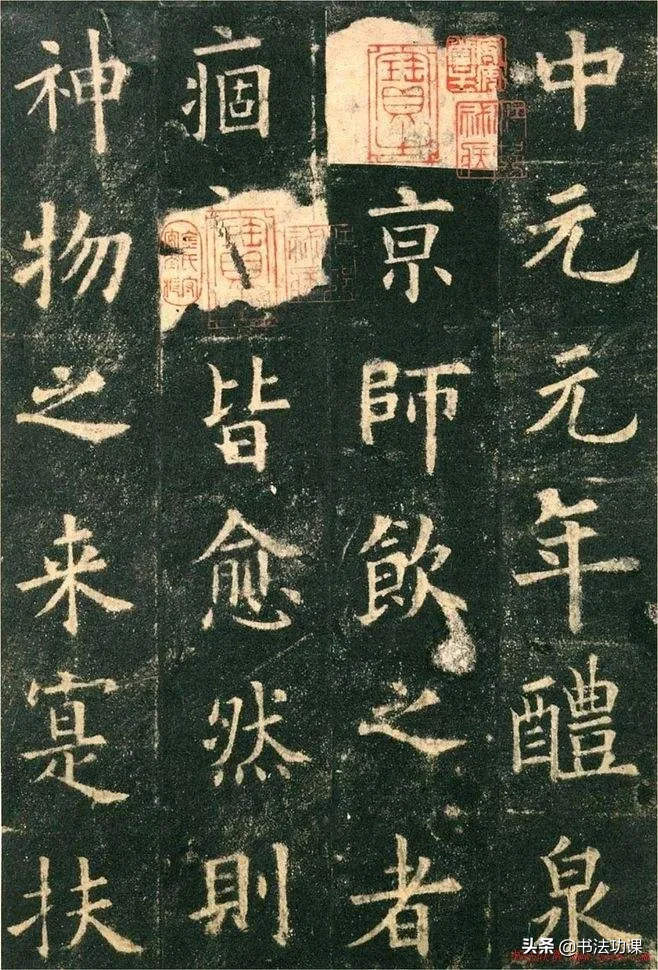 中元元年醴泉
亰師飲之者
痼皆愈然則
神物之来寔扶
头条 @书法功课